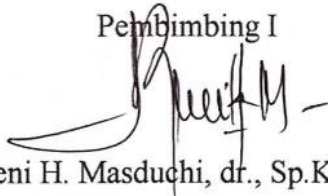 Pembimbing I
eni H. Masduchi, dr., Sp.K